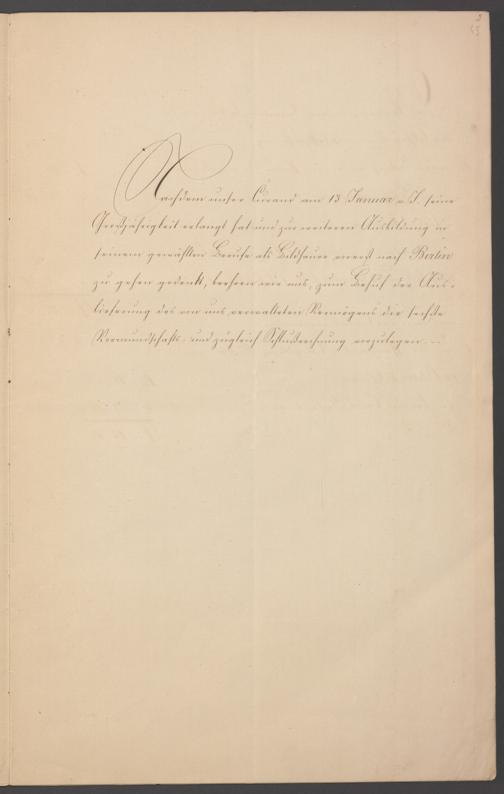 Nachdem unser Curand am 13 Januar a. J. seine
Großjährigkeit erlangt hat und zur weiteren Ausbildung in
seinem gewählten Berufe als Bildhauer zuerst nach Berlin
zu gehen gedenkt, beehren wir uns, zum Behuf der Aus-
lieferung des von uns verwalteten Vermögens die sechste
Vormundschafts- und zugleich Schlußrechnung vorzulegen.